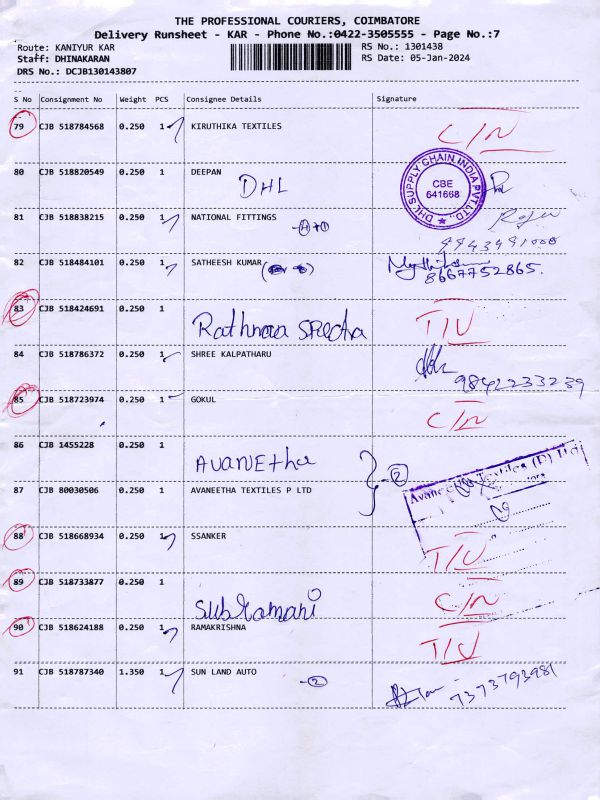 THE PROFESSIONAL COURIERS, COIMBATORE
Delivery Runsheet - KAR - Phone No.:0422-3505555 - Page No.:7
Route: KANIYUR KAR RS No.: 1301438
Staff: DHINAKARAN RS Date: 05-Jan-2024
DRS No.: DCJB130143807
S No Consignment No Weight PCS Consignee Details Signature
79 CJB 518784568 0.250 1 KIRUTHIKA TEXTILES C/N
80 CJB 518820549 0.250 1 DEEPAN
DHL
DHL SUPPLY CHAIN INDIA PVT. LTD.
CBE
641668
81 CJB 518838215 0.250 1 NATIONAL FITTINGS
82 CJB 518484101 0.250 1 SATHEESH KUMAR
8667752865.
83 CJB 518424691 0.250 1 T/U
Rathnaa
84 CJB 518786372 0.250 1 SHREE KALPATHARU
9842233239
85 CJB 518723974 0.250 1 GOKUL C/N
86 CJB 1455228 0.250 1
Avaneetha 2
87 CJB 80030506 0.250 1 AVANEETHA TEXTILES P LTD
Avaneetha Textiles (P) Ltd
88 CJB 518668934 0.250 1 SSANKER T/U
89 CJB 518733877 0.250 1 C/N
Subramani
90 CJB 518624188 0.250 1 RAMAKRISHNA T/U
91 CJB 518787340 1.350 1 SUN LAND AUTO 2
7373793981